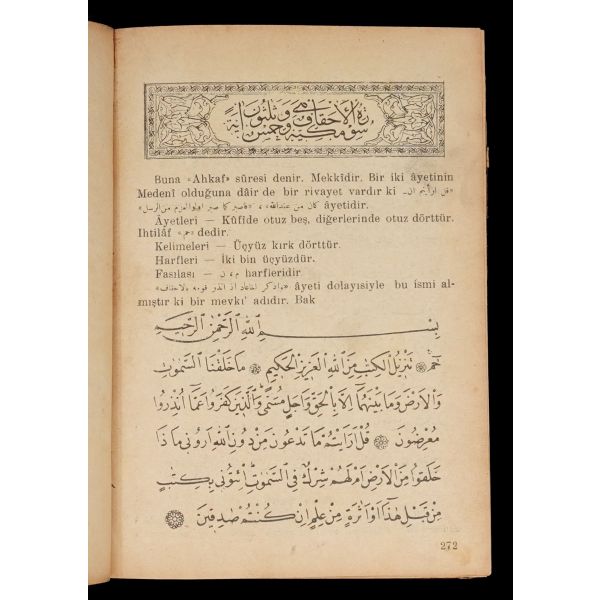 سورة الأحقاف مكية وهى خمس وثلثون آية
Buna «Ahkaf» sûresi denir. Mekkîdir. Bir iki âyetinin
Medenî olduğuna dâir de bir rivayet vardır ki «قل ارأيتم ان
كان من عندالله، «فاصبر كما صبر اولوا العزم من الرسل» âyetidir.
Âyetleri — Kûfîde otuz beş, diğerlerinde otuz dörttür.
Ihtilâf «حم» dedir.
Kelimeleri — Üçyüz kırk dörttür.
Harfleri — İki bin üçyüzdür.
Fasılası — م، ن harfleridir
«واذكر اخاعاد اذ انذر قومه بالاحقاف» âyeti dolayısiyle bu ismi al-
mıştır ki bir mevkı' adıdır. Bak
بِسْمِ اللهِ الرَّحْمٰنِ الرَّحِيمِ
حٰمٓ ۞ تَنْزِيلُ الْكِتَابِ مِنَ اللهِ الْعَزِيزِ الْحَكِيمِ ۞ مَا خَلَقْنَا السَّمٰوَاتِ
وَالْاَرْضَ وَمَا بَيْنَهُمَا اِلَّا بِالْحَقِّ وَاَجَلٍ مُسَمًّى وَالَّذِينَ كَفَرُوا عَمَّا اُنْذِرُوا
مُعْرِضُونَ ۞ قُلْ اَرَاَيْتُمْ مَا تَدْعُونَ مِنْ دُونِ اللهِ اَرُونِى مَا ذَا
خَلَقُوا مِنَ الْاَرْضِ اَمْ لَهُمْ شِرْكٌ فِى السَّمٰوَاتِ اِئْتُونِى بِكِتَابٍ
مِنْ قَبْلِ هٰذَا اَوْ اَثَارَةٍ مِنْ عِلْمٍ اِنْ كُنْتُمْ صَادِقِينَ ۞
272